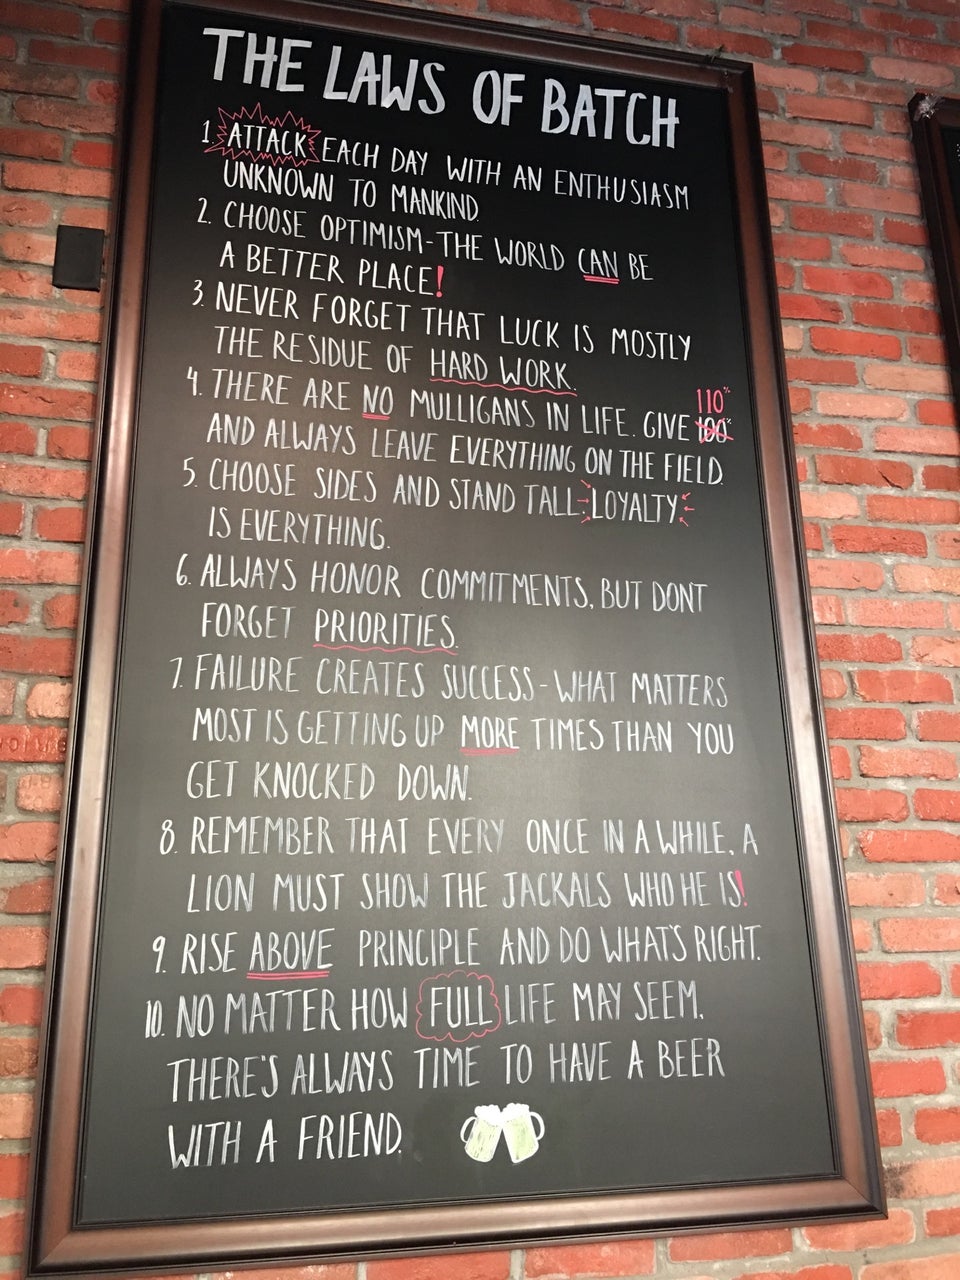 THE LAWS OF BATCH
1. ATTACK EACH DAY WITH AN ENTHUSIASM
UNKNOWN TO MANKIND.
2. CHOOSE OPTIMISM-THE WORLD CAN BE
A BETTER PLACE!
3. NEVER FORGET THAT LUCK IS MOSTLY
THE RESIDUE OF HARD WORK.
110%
4. THERE ARE NO MULLIGANS IN LIFE. GIVE 100%
AND ALWAYS LEAVE EVERYTHING ON THE FIELD.
5. CHOOSE SIDES AND STAND TALL: LOYALTY
IS EVERYTHING.
6. ALWAYS HONOR COMMITMENTS, BUT DONT
FORGET PRIORITIES.
7. FAILURE CREATES SUCCESS-WHAT MATTERS
MOST IS GETTING UP MORE TIMES THAN YOU
GET KNOCKED DOWN.
8. REMEMBER THAT EVERY ONCE IN A WHILE, A
LION MUST SHOW THE JACKALS WHO HE IS!
9. RISE ABOVE PRINCIPLE AND DO WHAT'S RIGHT.
10. NO MATTER HOW FULL LIFE MAY SEEM,
THERE'S ALWAYS TIME TO HAVE A BEER
WITH A FRIEND.